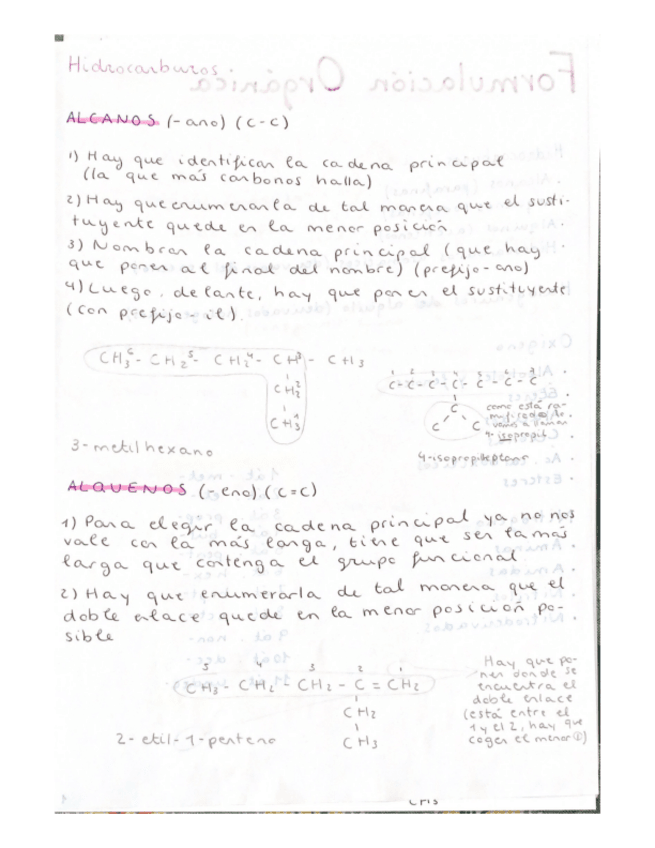 Hidrocarburos.
ALCANOS (-ano) (C-C)
1) Hay que identificar la cadena principal
(la que más carbonos halla)
2) Hay que enumerarla de tal manera que el susti-
tuyente quede en la menor posición
3) Nombrar la cadena principal (que hay
que poner al final del nombre) (prefijo-ano)
4) Luego, delante, hay que poner el sustituyente
(con prefijo-il).
CH3 6 - CH2 5 - CH2 4 - CH 3 - CH3
CH2 2
CH3 1
3-metilhexano
1 2 3 4 5 6 7
C-C-C-C-C-C-C
C
C C
como está ra-
mificado lo
vamos a llamar
4-isopropil
4-isopropileptano
ALQUENOS (-eno) (C=C)
1) Para elegir la cadena principal ya no nos
vale con la más larga, tiene que ser la más
larga que contenga el grupo funcional
2) Hay que enumerarla de tal manera que el
doble enlace quede en la menor posición po-
sible
5 4 3 2 1
CH3 - CH2 - CH2 - C = CH2
CH2
CH3
2-etil-1-penteno
Hay que po-
ner donde se
encuentra el
doble enlace
(está entre el
1 y el 2, hay que
coger el menor ①)